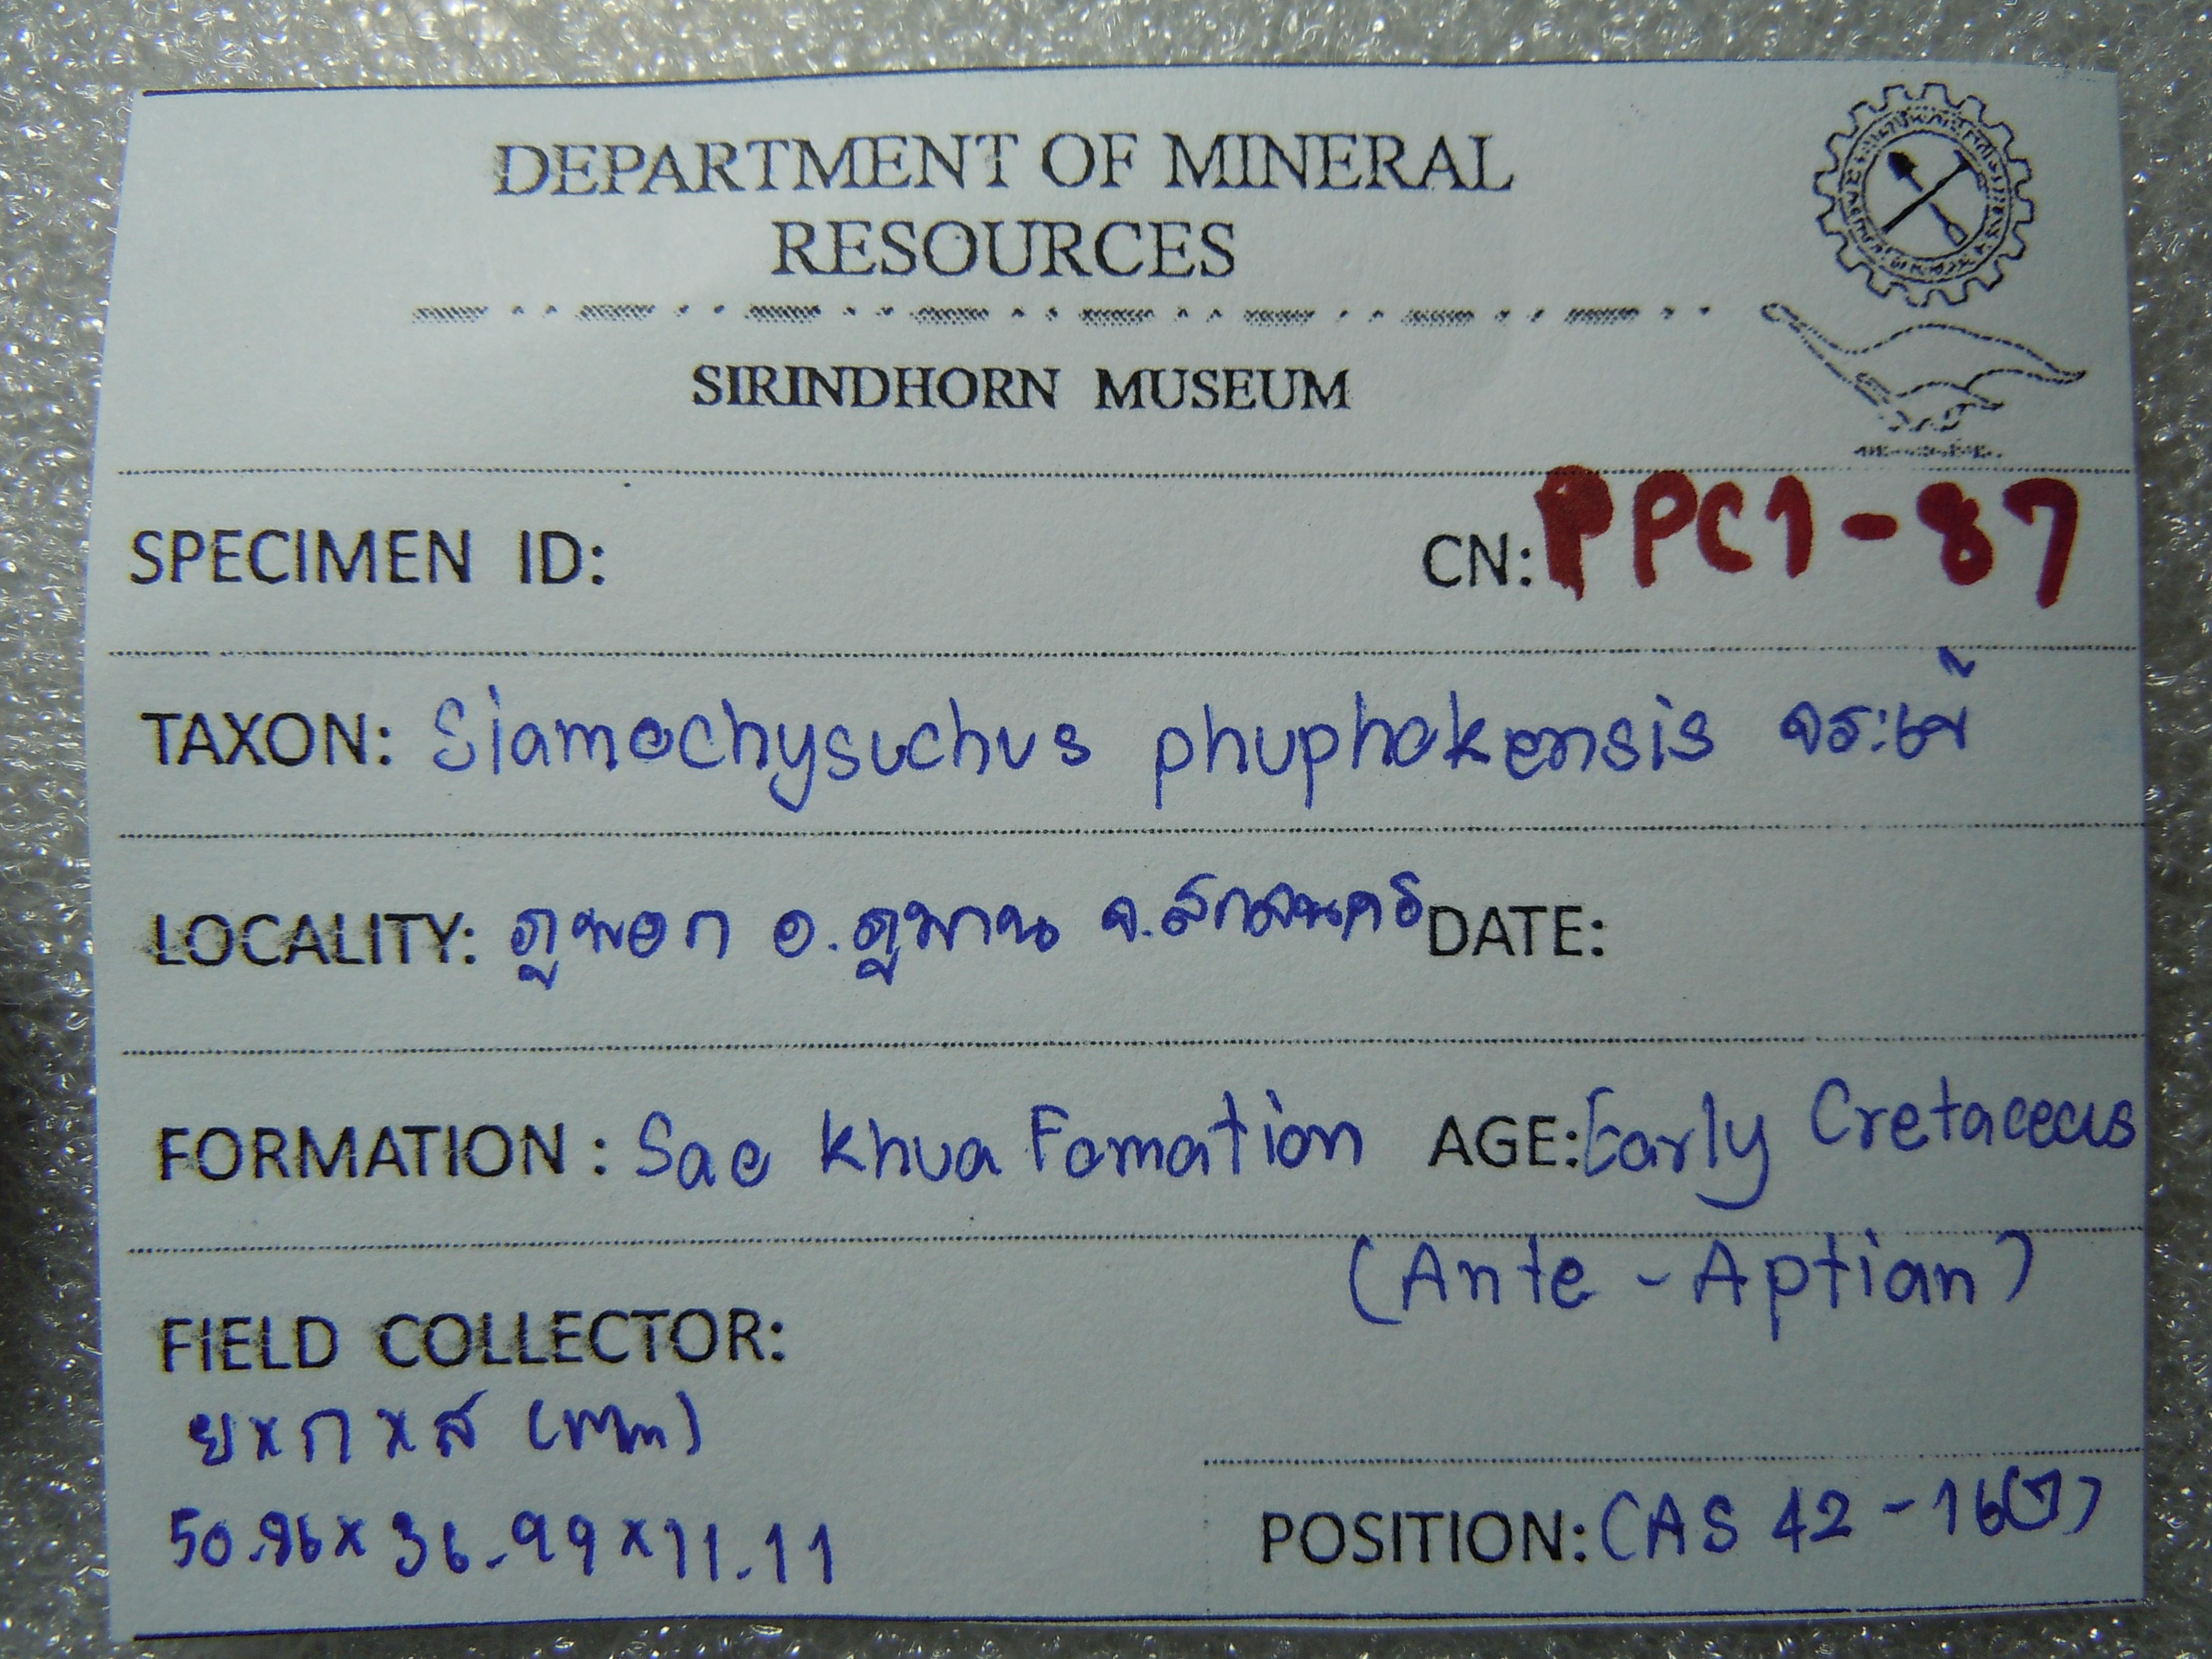 DEPARTMENT OF MINERAL
RESOURCES
SIRINDHORN MUSEUM
SPECIMEN ID: CN: PPC1-87
TAXON: Siamochysuchus phuphokensis จระเข้
LOCALITY: ภูพอก อ.ภูพาน จ.สกลนคร DATE:
FORMATION : Sao Khua Fomation AGE: Early Cretaceous
(Ante - Aptian)
FIELD COLLECTOR:
ย x ก x ส (mm)
50.96 x 36.99 x 11.11
POSITION: CAS 42 - 16(7)